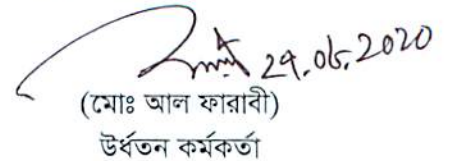 29.06.2020
(মোঃ আল ফারাবী)
উর্ধতন কর্মকর্তা